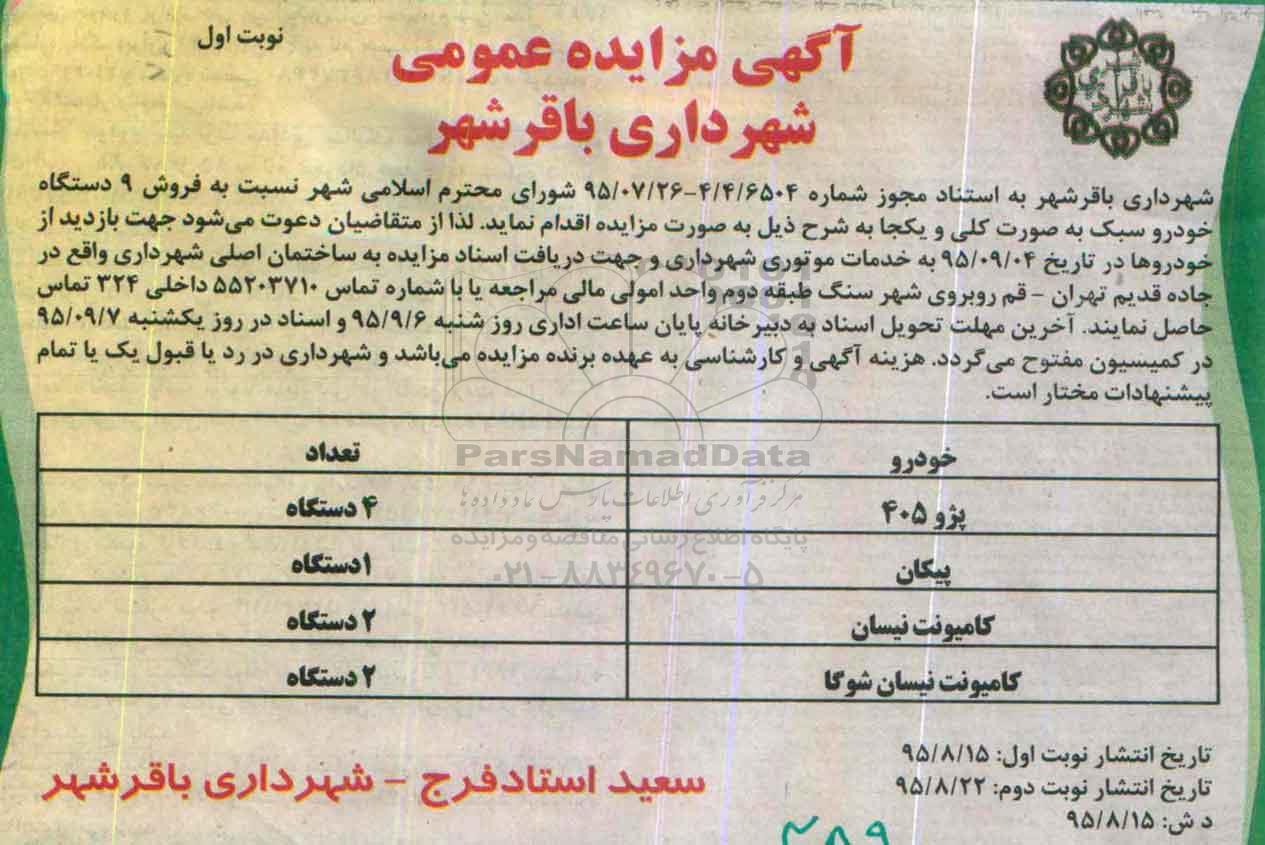 نوبت اول
آگهی مزایده عمومی
شهرداری باقرشهر
شهرداری باقرشهر به استناد مجوز شماره ۴/۴/۶۵۰۴-۹۵/۰۷/۲۶ شورای محترم اسلامی شهر نسبت به فروش ۹ دستگاه
خودرو سبک به صورت کلی و یکجا به شرح ذیل به صورت مزایده اقدام نماید. لذا از متقاضیان دعوت می‌شود جهت بازدید از
خودروها در تاریخ ۹۵/۰۹/۰۴ به خدمات موتوری شهرداری و جهت دریافت اسناد مزایده به ساختمان اصلی شهرداری واقع در
جاده قدیم تهران - قم روبروی شهر سنگ طبقه دوم واحد امولی مالی مراجعه یا با شماره تماس ۵۵۲۰۳۷۱۰ داخلی ۳۲۴ تماس
حاصل نمایند. آخرین مهلت تحویل اسناد به دبیرخانه پایان ساعت اداری روز شنبه ۹۵/۹/۶ و اسناد در روز یکشنبه ۹۵/۰۹/۷
در کمیسیون مفتوح می‌گردد. هزینه آگهی و کارشناسی به عهده برنده مزایده می‌باشد و شهرداری در رد یا قبول یک یا تمام
پیشنهادات مختار است.
خودرو تعداد
پژو ۴۰۵ ۴ دستگاه
پیکان ۱دستگاه
کامیونت نیسان ۲ دستگاه
کامیونت نیسان شوگا ۲ دستگاه
ParsNamadData
مرکز فرآوری اطلاعات پارس نماد داده‌ها
پایگاه اطلاع رسانی مناقصه و مزایده
۰۲۱-۸۸۳۴۹۶۷۰-۵
تاریخ انتشار نوبت اول: ۹۵/۸/۱۵
تاریخ انتشار نوبت دوم: ۹۵/۸/۲۲
د ش: ۹۵/۸/۱۵
سعید استادفرج - شهرداری باقرشهر
۲۸۹